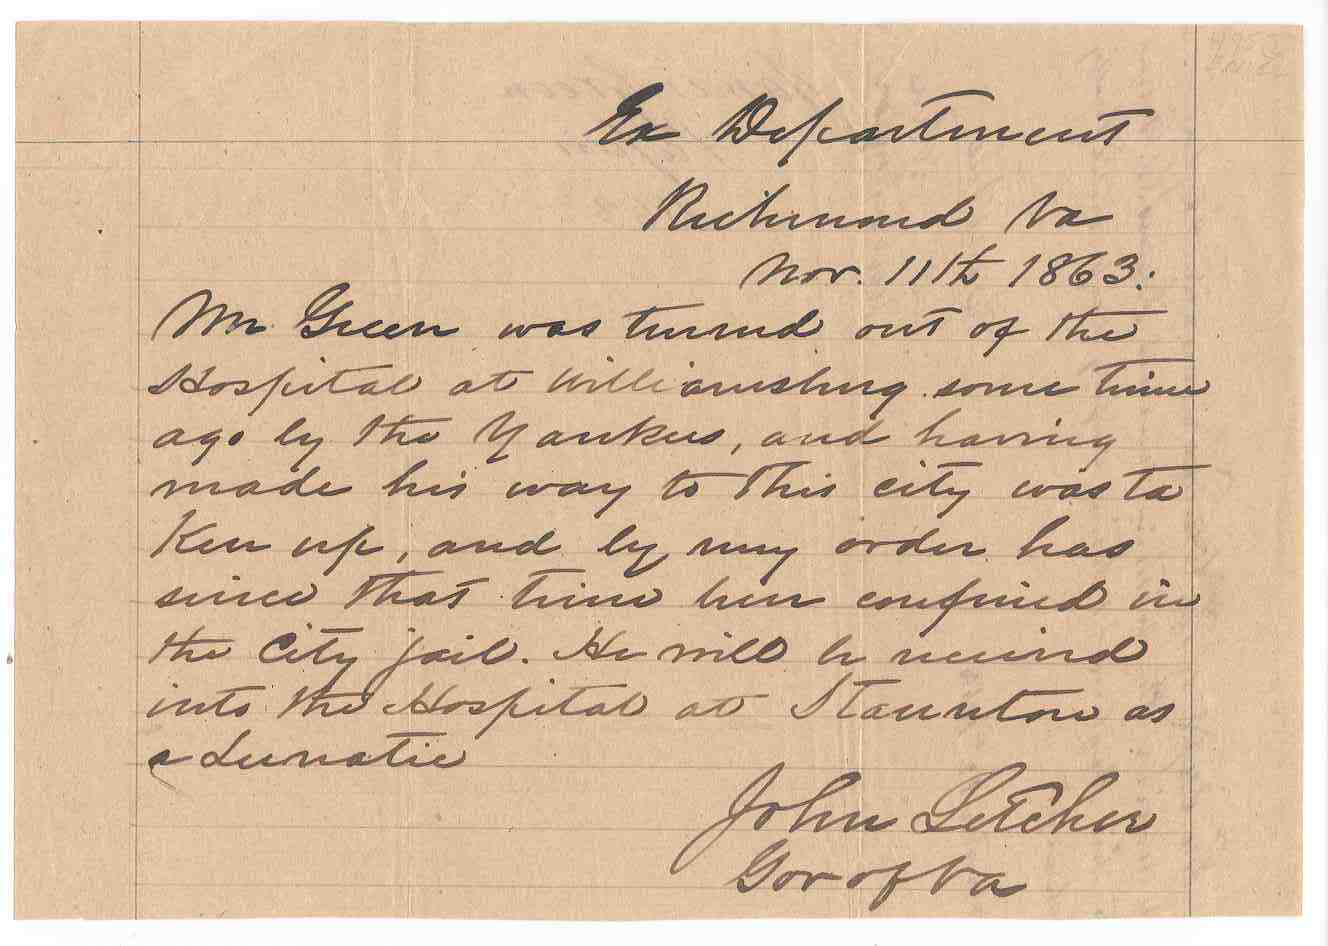 Ex Department
Richmond Va
Nov. 11th 1863.
Mr. Green was turned out of the
Hospital at Williamsburg some time
ago by the Yankees, and having
made his way to this city was ta
ken up, and by my order has
since that time been confined in
the City jail. He will be received
into the Hospital at Staunton as
a Lunatic
John Letcher
Gov of Va